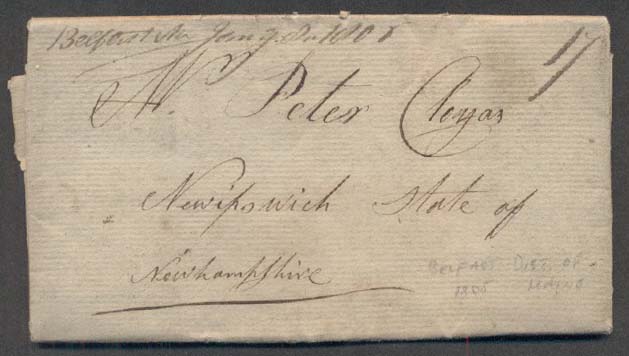 Belfast Me Jany 1805
17
Mr Peter Cleyas
Newipswich State of
Newhampshire
BELFAST DIST. OF
1805 MAINE